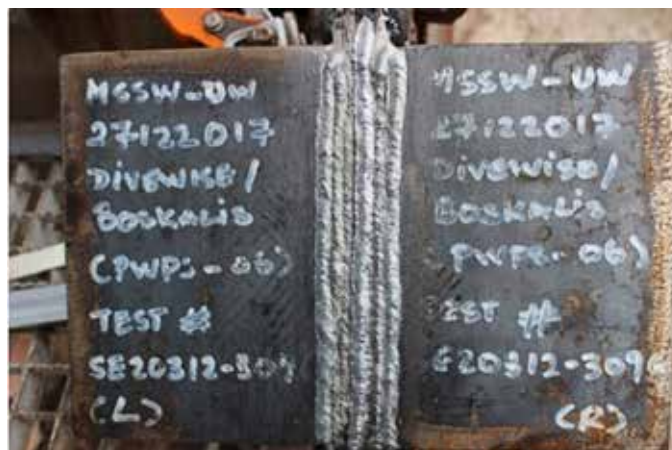 MSSW-UW
27122017
DIVEWISE/
BOSKALIS
(PWPS-06)
TEST #
(L)
MSSW-UW
27122017
DIVEWISE/
BOSKALIS
PWPS-06)
TEST #
(R)